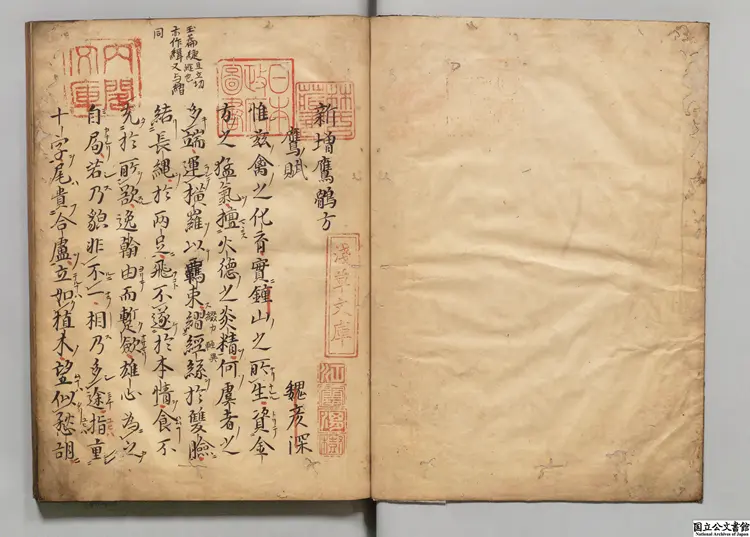 新増鷹鶻方
鷹賦
魏彦深
惟玆禽之化育實鍾山之所生資金
方之猛氣擅火德之炎精何虞者之
多端運横羅以羈束繒經絲於雙臉
結長繩於兩足飛不遂於本情食不
充於所欲逸翰由而蹔歛雄心為之
自局若乃貌非不一相乃多途指重
十字尾貴合盧立如植木望似愁胡
玉篇 且立切
亦作緝又与繒
同
林氏藏書
日本政府圖書
内閣文庫
淺草文庫
江雲渭樹
国立公文書館
National Archives of Japan